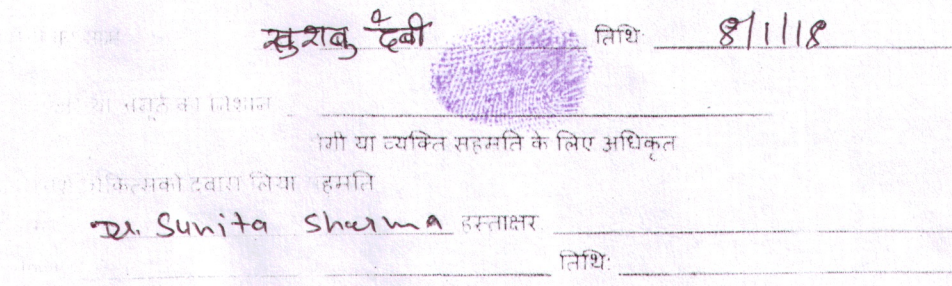 खुशबु देवी तिथि: 8/1/18
या अंगूठे का निशान
गी या व्यक्ति सहमति के लिए अधिकृत
चिकित्सको दवारा लिया सहमति
Dr. Sunita Sharma हस्ताक्षर
तिथि: